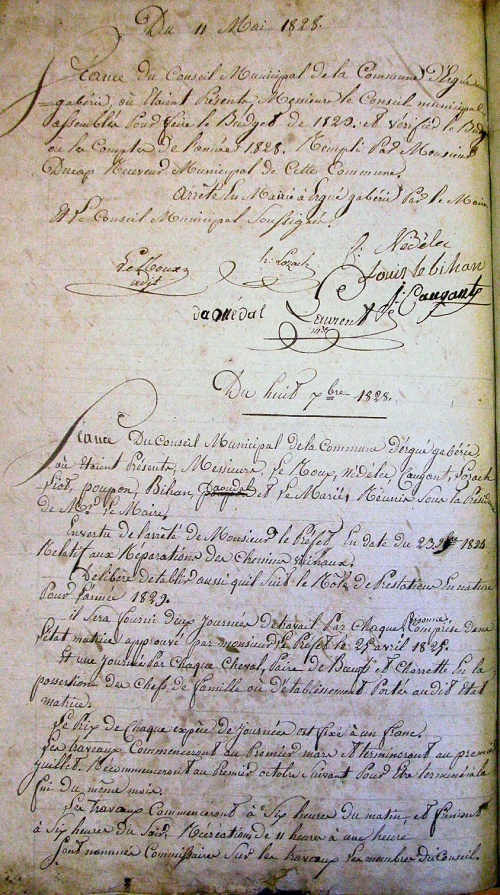 Du 11 Mai 1828.
Séance du Conseil Municipal de la Commune d'Ergué
gabéric, où Etaient Présents, Messieurs le Conseil municipal
assemblés Pour faire le Budget de 1829. et vérifier le
ou les Comptes de l'année 1828. Rempli Par Monsieur
Ducap Receveur Municipal de Cette Commune.
Arrêté En Mairie à Ergué gabéric Par le Maire
Et le Conseil Municipal Soussigné.
f: Nédélec
Le Roux h: Lozach Louis le bihan
adjt J: Caugant
daoNédal Laurent
Du huit 7bre 1828.
Séance Du Conseil Municipal de la Commune d'ergué gabéric,
où étaient Présents, Messieurs, Le Roux, Nédélec, Caugant, Lozach
poupon, Bihan, et Le Marié, Réunis Sous la
de Mr. Le Maire,
En vertu de l'arrêté de Monsieur le Préfet En date du 23 1824
Relatif aux Réparations des Chemins vicinaux.
Délibère d'établir aussi qu'il Suit le Rôle de Prestations En nature
Pour l'année 1829.
il Sera fourni deux Journées de travail Par Chaque Personne Comprise dans
l'état matrice approuvé par monsieur Le Préfet le 25 avril 1825.
Et une Journée Par Chaque Cheval, Paire de Bœufs et Charrette En la
possession des Chefs de famille où d'établissement Portés audit Etat
matrice.
Le Prix de Chaque espèce de journée est fixé à un franc.
Les travaux Commenceront au Premier mars et termineront au premier
juillet. Recommenceront au Premier octobre Suivant Pour être terminé à la
fin du même mois.
Les travaux Commenceront à Six heures du matin et finiront
à Six heures du Soir, Récréations de 11 heures à une heure
Sont nommés Commissaires Sur les travaux Les membres du Conseil.